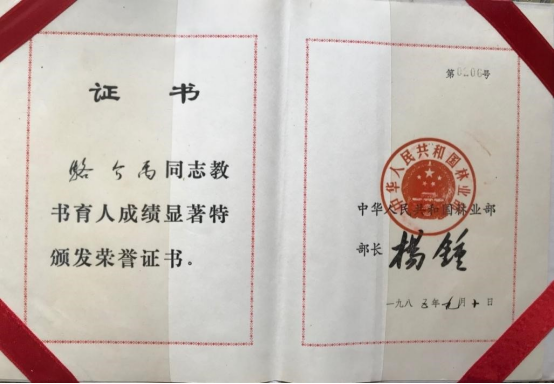 证 书
骆 兮 禹 同志教
书育人成绩显著特
颁发荣誉证书。
第0206号
中华人民共和国林业部
中华人民共和国林业部
部长 杨 锺
一九八五年九月十日